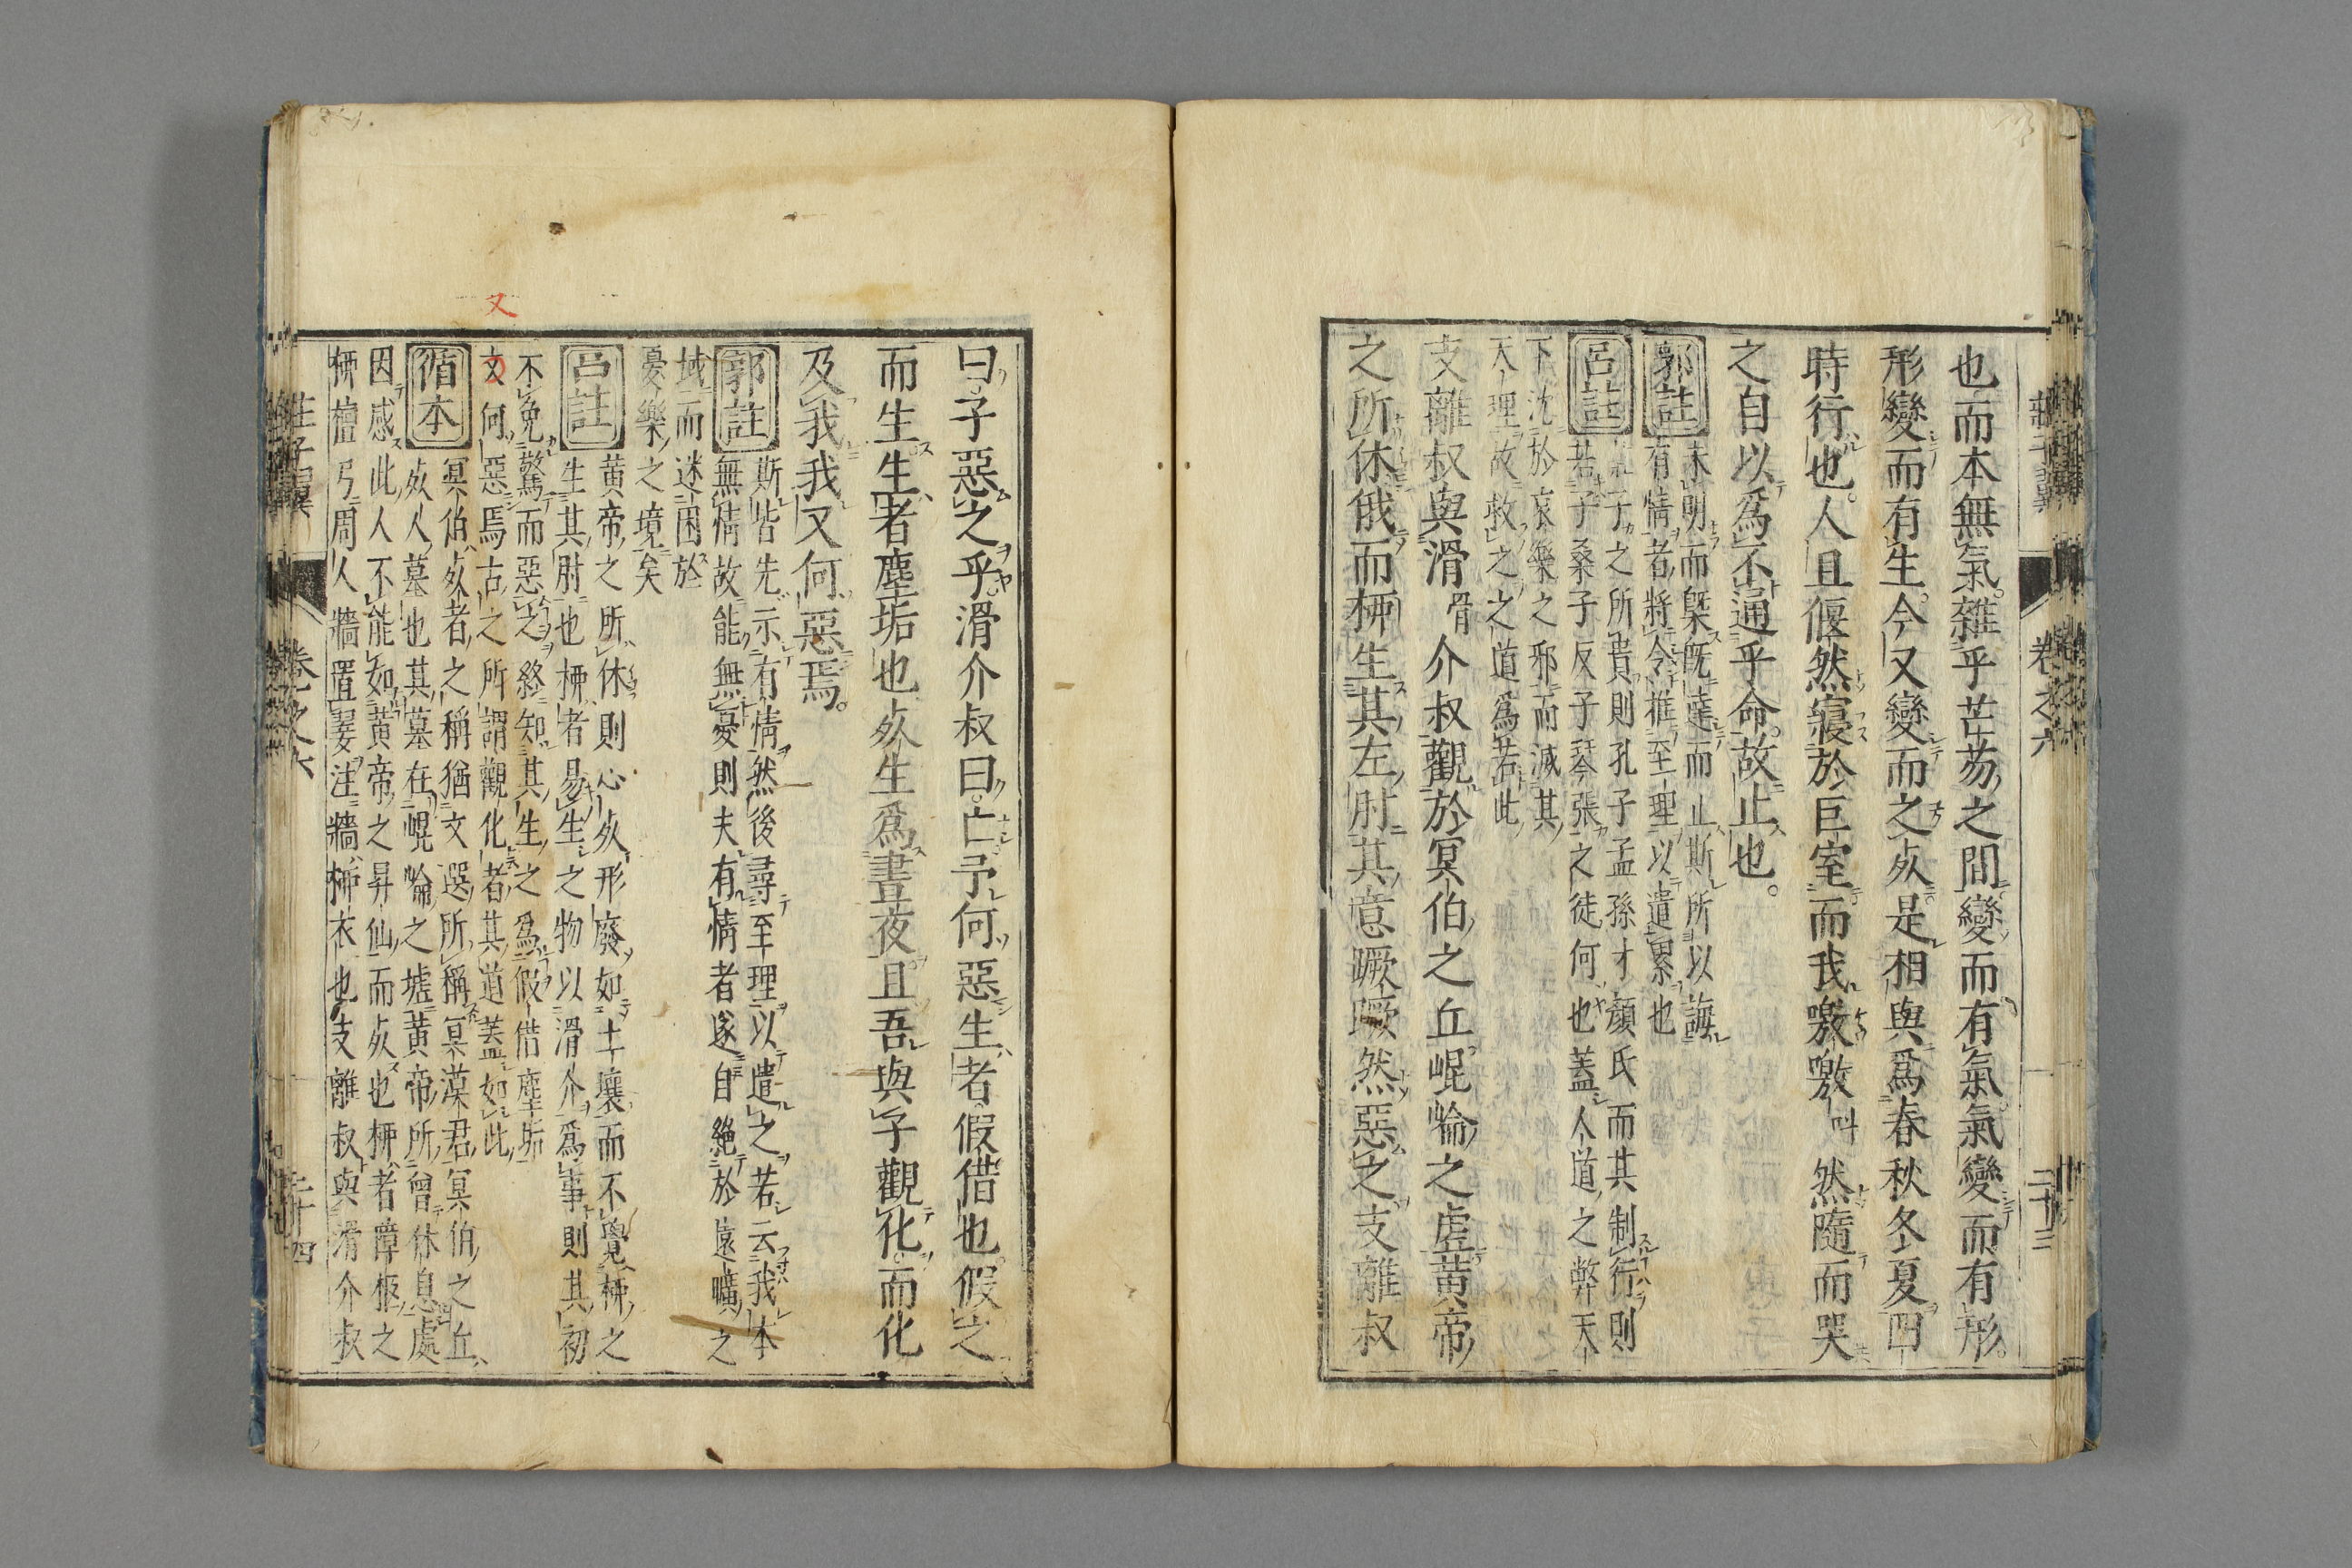 也而本無氣。雜乎芒芴之間。變而有氣。氣變而有形。
形變而有生。今又變而之死。是相與爲春秋冬夏四
時行也。人且偃然寢於巨室。而我噭噭叫然隨而哭
之自以爲不通乎命。故止也。
郭註
未明而槩既達而止斯所以誨
有情者將令推至理以遣累也
呂註
莊子之所貴則孔子孟孫才顏氏而其制行則
若子桑子反子琴張之徒何也蓋人道之弊天
下沈於哀樂之邪而滅其
天理故救之之道爲若此
支離叔與滑骨介叔觀於冥伯之丘崐崘之虛黃帝
之所休俄而柳生其左肘其意蹶蹶然惡之支離叔
莊子翼 卷之六 二十三
曰。子惡之乎。滑介叔曰。亡予何惡。生者假借也。假之
而生生者塵垢也死生爲晝夜且吾與子觀化。而化
及我我又何惡焉。
郭註
斯皆先示有情然後尋至理以遣之若云我本
無情故能無憂則夫有情者遂自絕於遠曠之
域而迷困於
憂樂之境矣
呂註
黃帝之所休則心死形廢如土壤而不覺柳之
生其肘也柳者易生之物以滑介爲事則其初
不免驚而惡之終知其生之爲假借塵垢
又
文何惡焉古之所謂觀化者其道蓋如此
循本
冥伯死者之稱猶文選所稱冥漠君冥伯之丘
死人墓也其墓在崐崘之墟黃帝所曾休息處
因感此人不能如黃帝之昇仙而死也柳者障柩之
柳檀弓周人牆置翣注牆柳衣也支離叔與滑介叔
莊子翼 卷之六 二十四